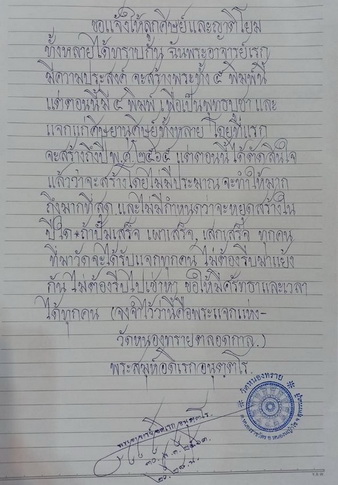 ขอแจ้งให้ลูกศิษย์และญาติโยม
ทั้งหลายได้ทราบกัน ฉันพระอาจารย์เรก
มีความประสงค์ จะสร้างพระทั้ง ๕ พิมพ์นี้
แต่ตอนนี้มี ๔ พิมพ์ เพื่อเป็นพุทธบูชา และ
แจกแก่ศิษยานุศิษย์ทั้งหลาย โดยที่แรก
จะสร้างถึงปีพ.ศ ๒๕๖๕ แต่ตอนนี้ได้ตัดสินใจ
แล้วว่าจะสร้างโดยไม่มีประมาณ จะทำให้มาก
ถึงมากที่สุด และไม่มีกำหนดว่าจะหยุดสร้างใน
ปีใด ถ้าปั๊มเสร็จ เผาเสร็จ เสกเสร็จ ทุกคน
ที่มาวัดจะได้รับแจกทุกคน ไม่ต้องรีบมาแย่ง
กัน ไม่ต้องรีบไปเช่าหา ขอให้มีศรัทธาและเวลา
ได้ทุกคน (จงจำไว้ว่านี่คือพระแจกแห่ง-
วัดหนองทรายตลอดกาล.)
พระสมุห์อดิเรกอนุตฺตโร.
วัดหนองทราย